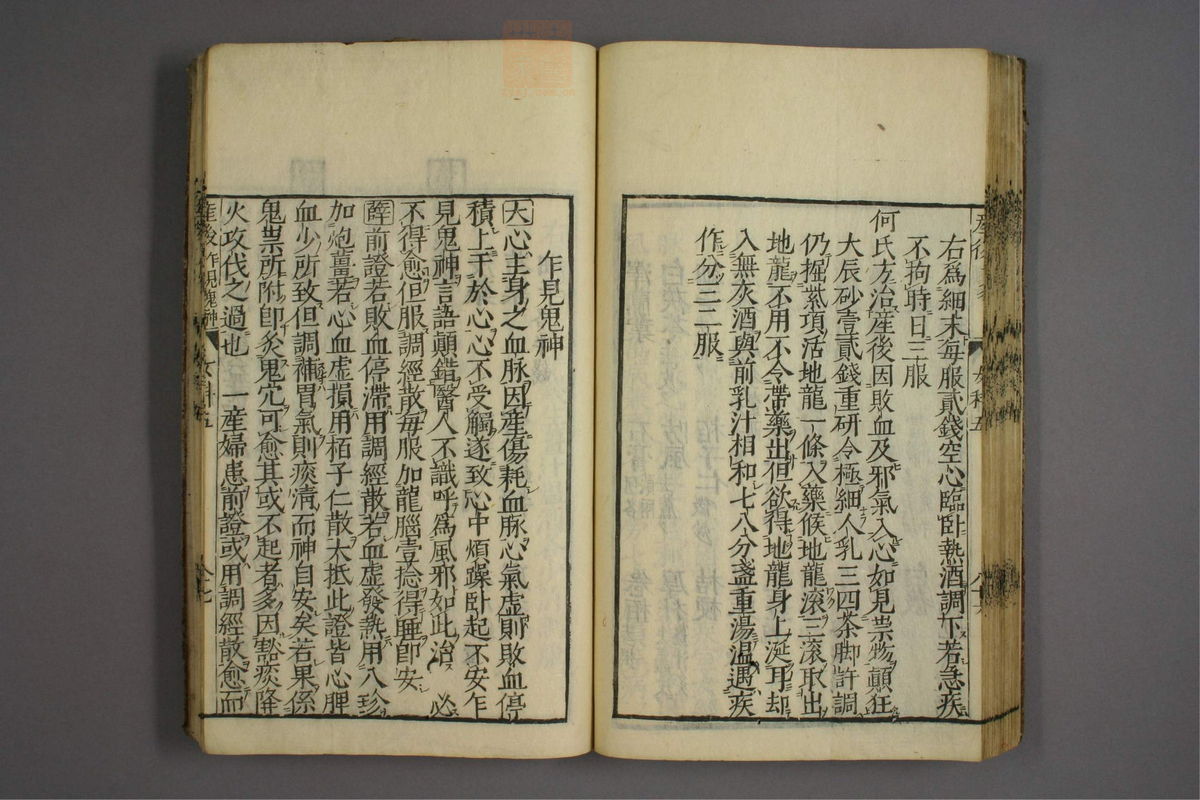 右爲細末每服貳錢空心臨卧熱酒調下若急疾
不拘時日三服
何氏方治產後因敗血及邪氣入心如見祟物顛狂
大辰砂壹貳錢重研令極細人乳三四茶脚許調
仍掘紫項活地龍一條入藥候地龍滚三滚取出
地龍不用不令帶藥出但欲得地龍身上涎耳却
入無灰酒與前乳汁相和七八分盞重湯温遇疾
作分三二服
乍見鬼神
大心主身之血脉因產傷耗血脉心氣虛則敗血停
積上干於心心不受觸遂致心中煩躁卧起不安乍
見鬼神言語顛錯醫人不識呼爲風邪如此治必
不得愈但服調經散每服加龍腦壹捻得睡卽安
薛前證若敗血停滯用調經散若血虛發熱用八珍
加炮薑若心血虛損用栢子仁散大抵此證皆心脾
血少所致但調補胃氣則痰清而神自安矣若果係
鬼祟所附卽灸鬼穴可愈其或不起者多因豁痰降
火攻伐之過也 一產婦患前證或用調經散愈而
產後乍見鬼神